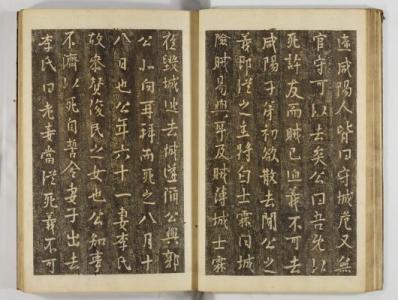 遠咸陽人皆曰守城危又無
官守可以去矣公曰吾既以
死許友而賊已迫義不可去
咸陽子弟初欲散去聞公之
義即從之主將白士霖城
險賊易與耳及賊薄城士霖
從毀城逃去城遂陷公與郭
公北向再拜而死之八月十
八日也公年六十一妻李氏
故俊民之女也公知事
不濟以死自誓令妻子出去
李氏曰老妻當從死義不可